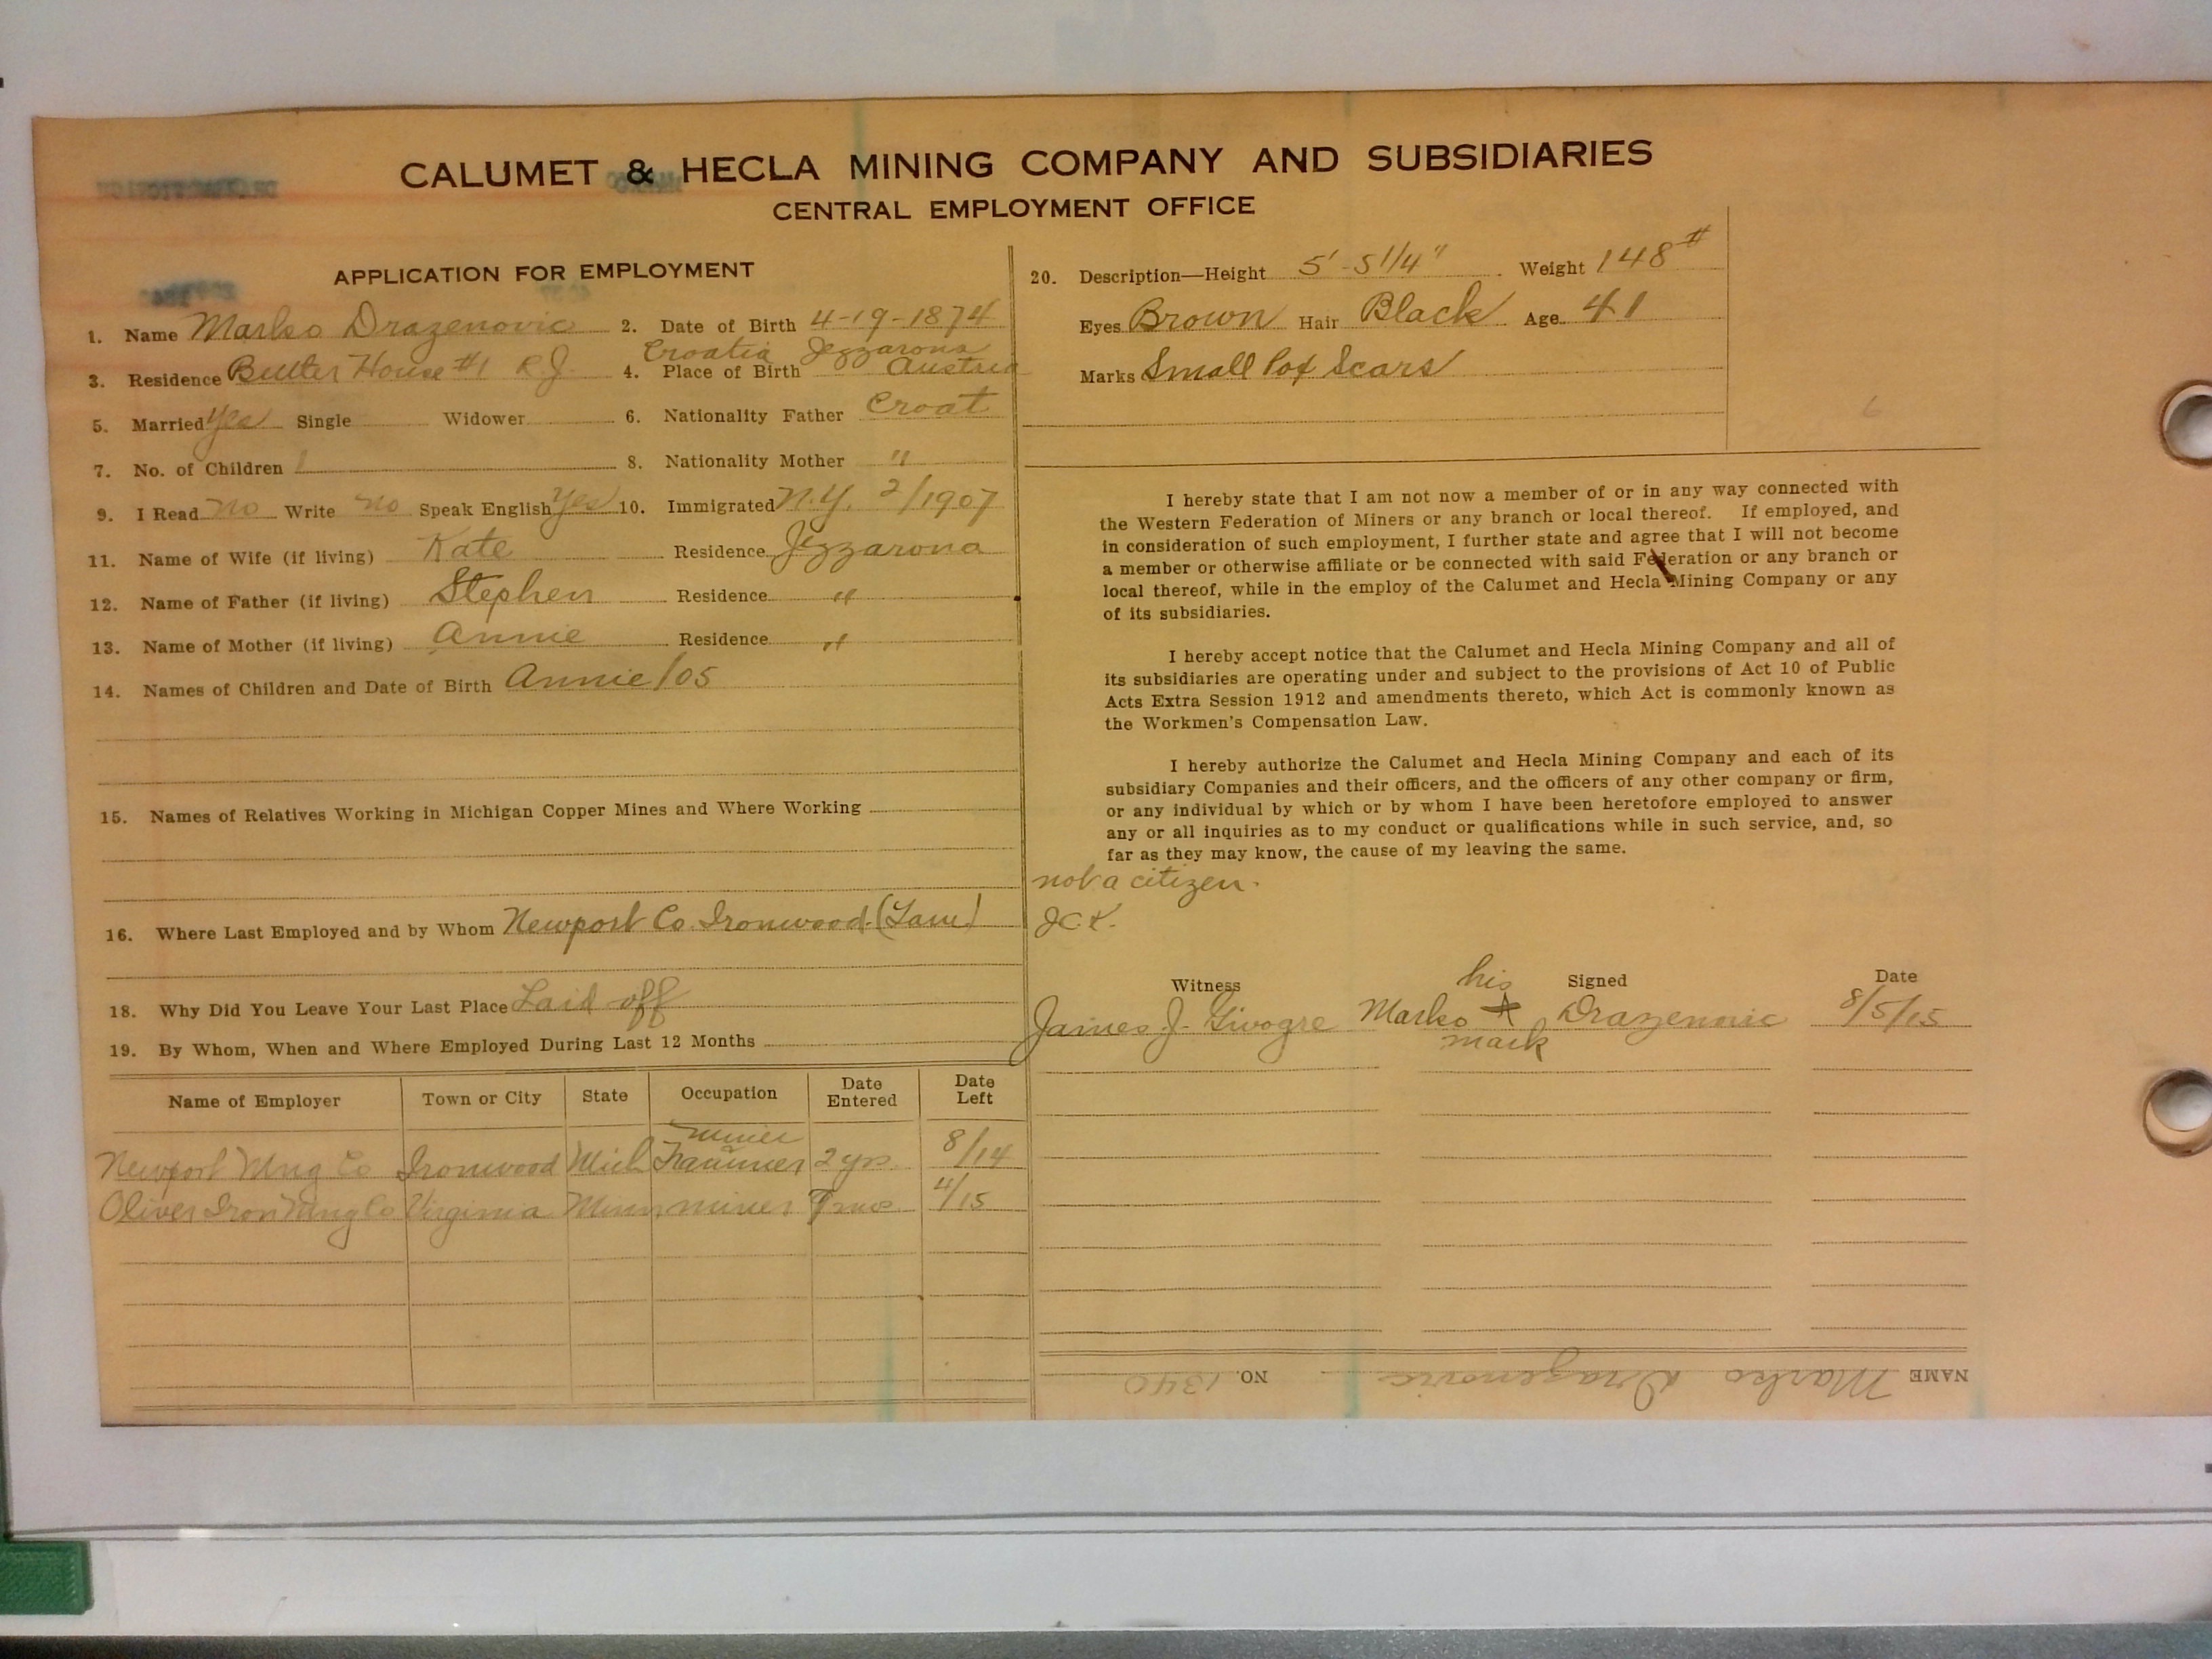 CALUMET & HECLA MINING COMPANY AND SUBSIDIARIES
CENTRAL EMPLOYMENT OFFICE
APPLICATION FOR EMPLOYMENT
1. Name Marko Drazenovic 2. Date of Birth 4-19-1874
Croatia Jezzarona
3. Residence Butler House #1 R.J. 4. Place of Birth Austria
5. Married Yes Single Widower 6. Nationality Father Croat
7. No. of Children 1 8. Nationality Mother "
9. I Read no Write no Speak English Yes 10. Immigrated N.Y. 2/1907
11. Name of Wife (if living) Kate Residence Jezzarona
12. Name of Father (if living) Stephen Residence "
13. Name of Mother (if living) Annie Residence "
14. Names of Children and Date of Birth Annie/05
15. Names of Relatives Working in Michigan Copper Mines and Where Working
16. Where Last Employed and by Whom Newport Co. Ironwood
18. Why Did You Leave Your Last Place Laid off
19. By Whom, When and Where Employed During Last 12 Months
Name of Employer Town or City State Occupation Date Entered Date Left
miner
Newport Mng Co Ironwood Mich Trammer 2 yrs. 8/14
Oliver Iron Mng Co Virginia Minn. miner mos. 4/15
20. Description—Height 5'-5 1/4" Weight 148#
Eyes Brown Hair Black Age 41
Marks Small Pox Scars
I hereby state that I am not now a member of or in any way connected with
the Western Federation of Miners or any branch or local thereof. If employed, and
in consideration of such employment, I further state and agree that I will not become
a member or otherwise affiliate or be connected with said Federation or any branch or
local thereof, while in the employ of the Calumet and Hecla Mining Company or any
of its subsidiaries.
I hereby accept notice that the Calumet and Hecla Mining Company and all of
its subsidiaries are operating under and subject to the provisions of Act 10 of Public
Acts Extra Session 1912 and amendments thereto, which Act is commonly known as
the Workmen's Compensation Law.
I hereby authorize the Calumet and Hecla Mining Company and each of its
subsidiary Companies and their officers, and the officers of any other company or firm,
or any individual by which or by whom I have been heretofore employed to answer
any or all inquiries as to my conduct or qualifications while in such service, and, so
far as they may know, the cause of my leaving the same.
not a citizen.
J.C.K.
Witness his Signed Date
James J. Marko x Drazenovic 8/5/15
mark
NAME Marko Drazenovic NO. 1340